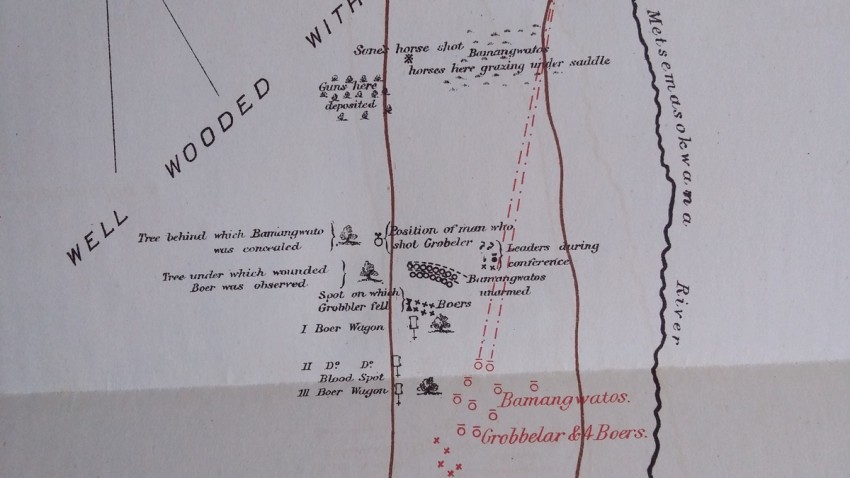 WELL WOODED WITH
Some horse shot
Bamangwatos
horses here grazing under saddle
Guns here
deposited
Metsemasokwana River
Tree behind which Bamangwato
was concealed
Position of man who
shot Grobeler
Leaders during
conference
Tree under which wounded
Boer was observed
Bamangwatos
unarmed
Spot on which
Grobbler fell
Boers
I Boer Wagon
II Do. Do.
Blood Spot
III Boer Wagon
Bamangwatos.
Grobbelar & 4 Boers.